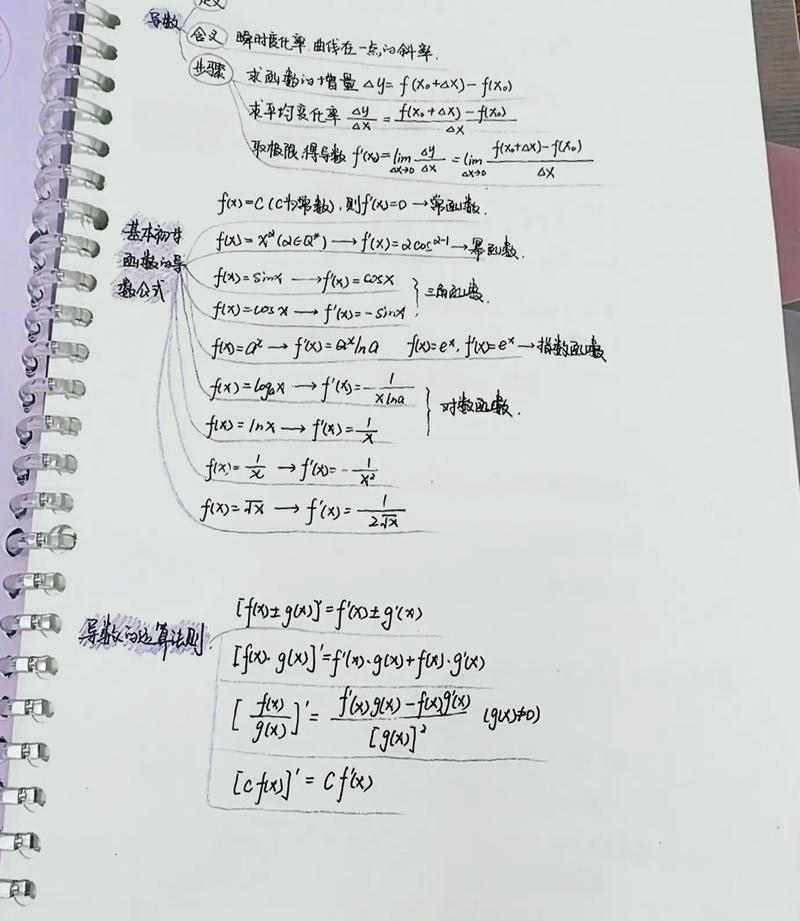 定义
导数
含义 瞬时变化率.曲线在一点的斜率.
步骤 求函数的增量 Δy = f(x₀+Δx) - f(x₀)
求平均变化率 Δy/Δx = (f(x₀+Δx) - f(x₀))/Δx
取极限,得导数 f'(x₀) = lim(Δx→0) Δy/Δx = lim(Δx→0) (f(x₀+Δx) - f(x₀))/Δx
f(x)=C (C为常数), 则f'(x)=0 → 常函数.
基本初等函数的导数公式
f(x)=x^α (α∈Q*) → f'(x)=αcos^(α-1) → 幂函数.
f(x)=sinx → f'(x)=cosx
f(x)=cosx → f'(x)=-sinx } 三角函数.
f(x)=a² → f'(x)=a^x lna f(x)=e^x, f'(x)=e^x → 指数函数
f(x)=logₐx → f'(x)=1/(xlna)
f(x)=lnx → f'(x)=1/x } 对数函数.
f(x)=1/x → f'(x)=-1/x²
f(x)=√x → f'(x)=1/(2√x)
导数的运算法则
[f(x)±g(x)]'=f'(x)±g'(x)
[f(x)·g(x)]'=f'(x)·g(x)+f(x)·g'(x)
[f(x)/g(x)]' = (f'(x)g(x)-f(x)g'(x))/[g(x)]² (g(x)≠0)
[cf(x)]' = Cf'(x)